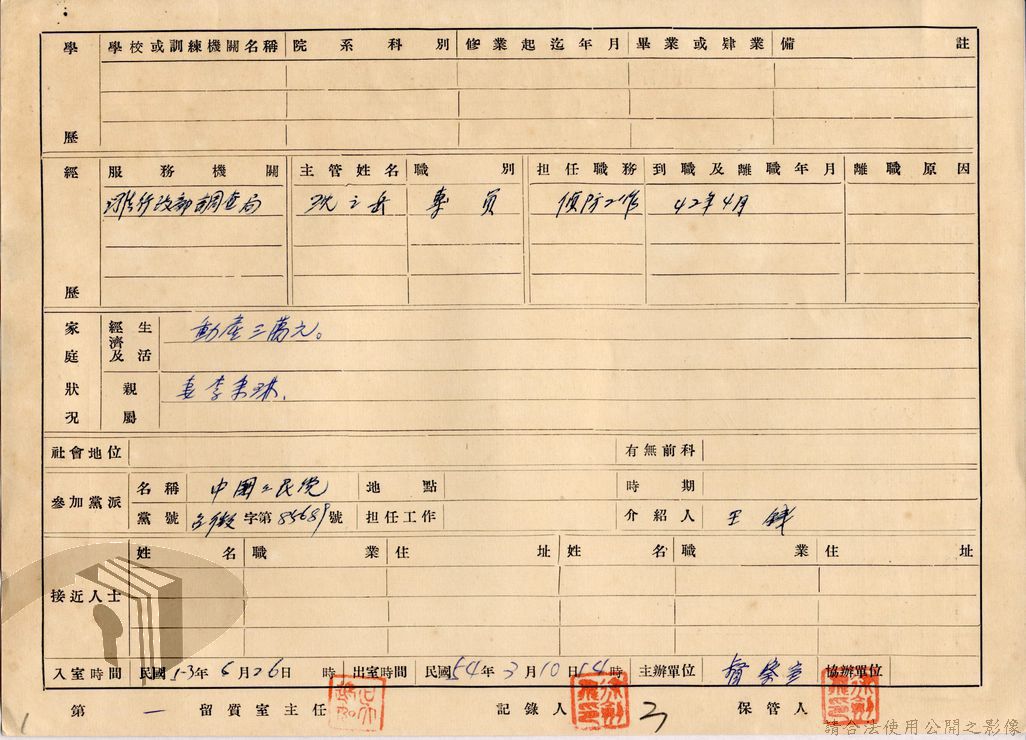 學歷 學校或訓練機關名稱 院系科別 修業起迄年月 畢業或肄業 備註
經歷 服務機關 主管姓名 職別 担任職務 到職及離職年月 離職原因
行政部調查局 沈之岳 專員 偵防工作 42年4月
家庭狀況 經濟及生活 動產三萬元。
親屬 妻李秉琳.
社會地位 有無前科
參加黨派 名稱 中國國民党 地點 時期
黨號 字第85689號 担任工作 介紹人 王
接近人士 姓名 職業 住址 姓名 職業 住址
入室時間 民國53年6月26日 時 出室時間 民國54年3月10日14時 主辦單位 督察室 協辦單位
第一留質室主任 記錄人 保管人
請合法使用公開之影像